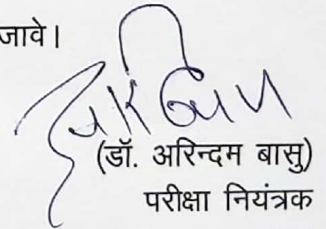 जावे।
(डॉ. अरिन्दम बासु)
परीक्षा नियंत्रक